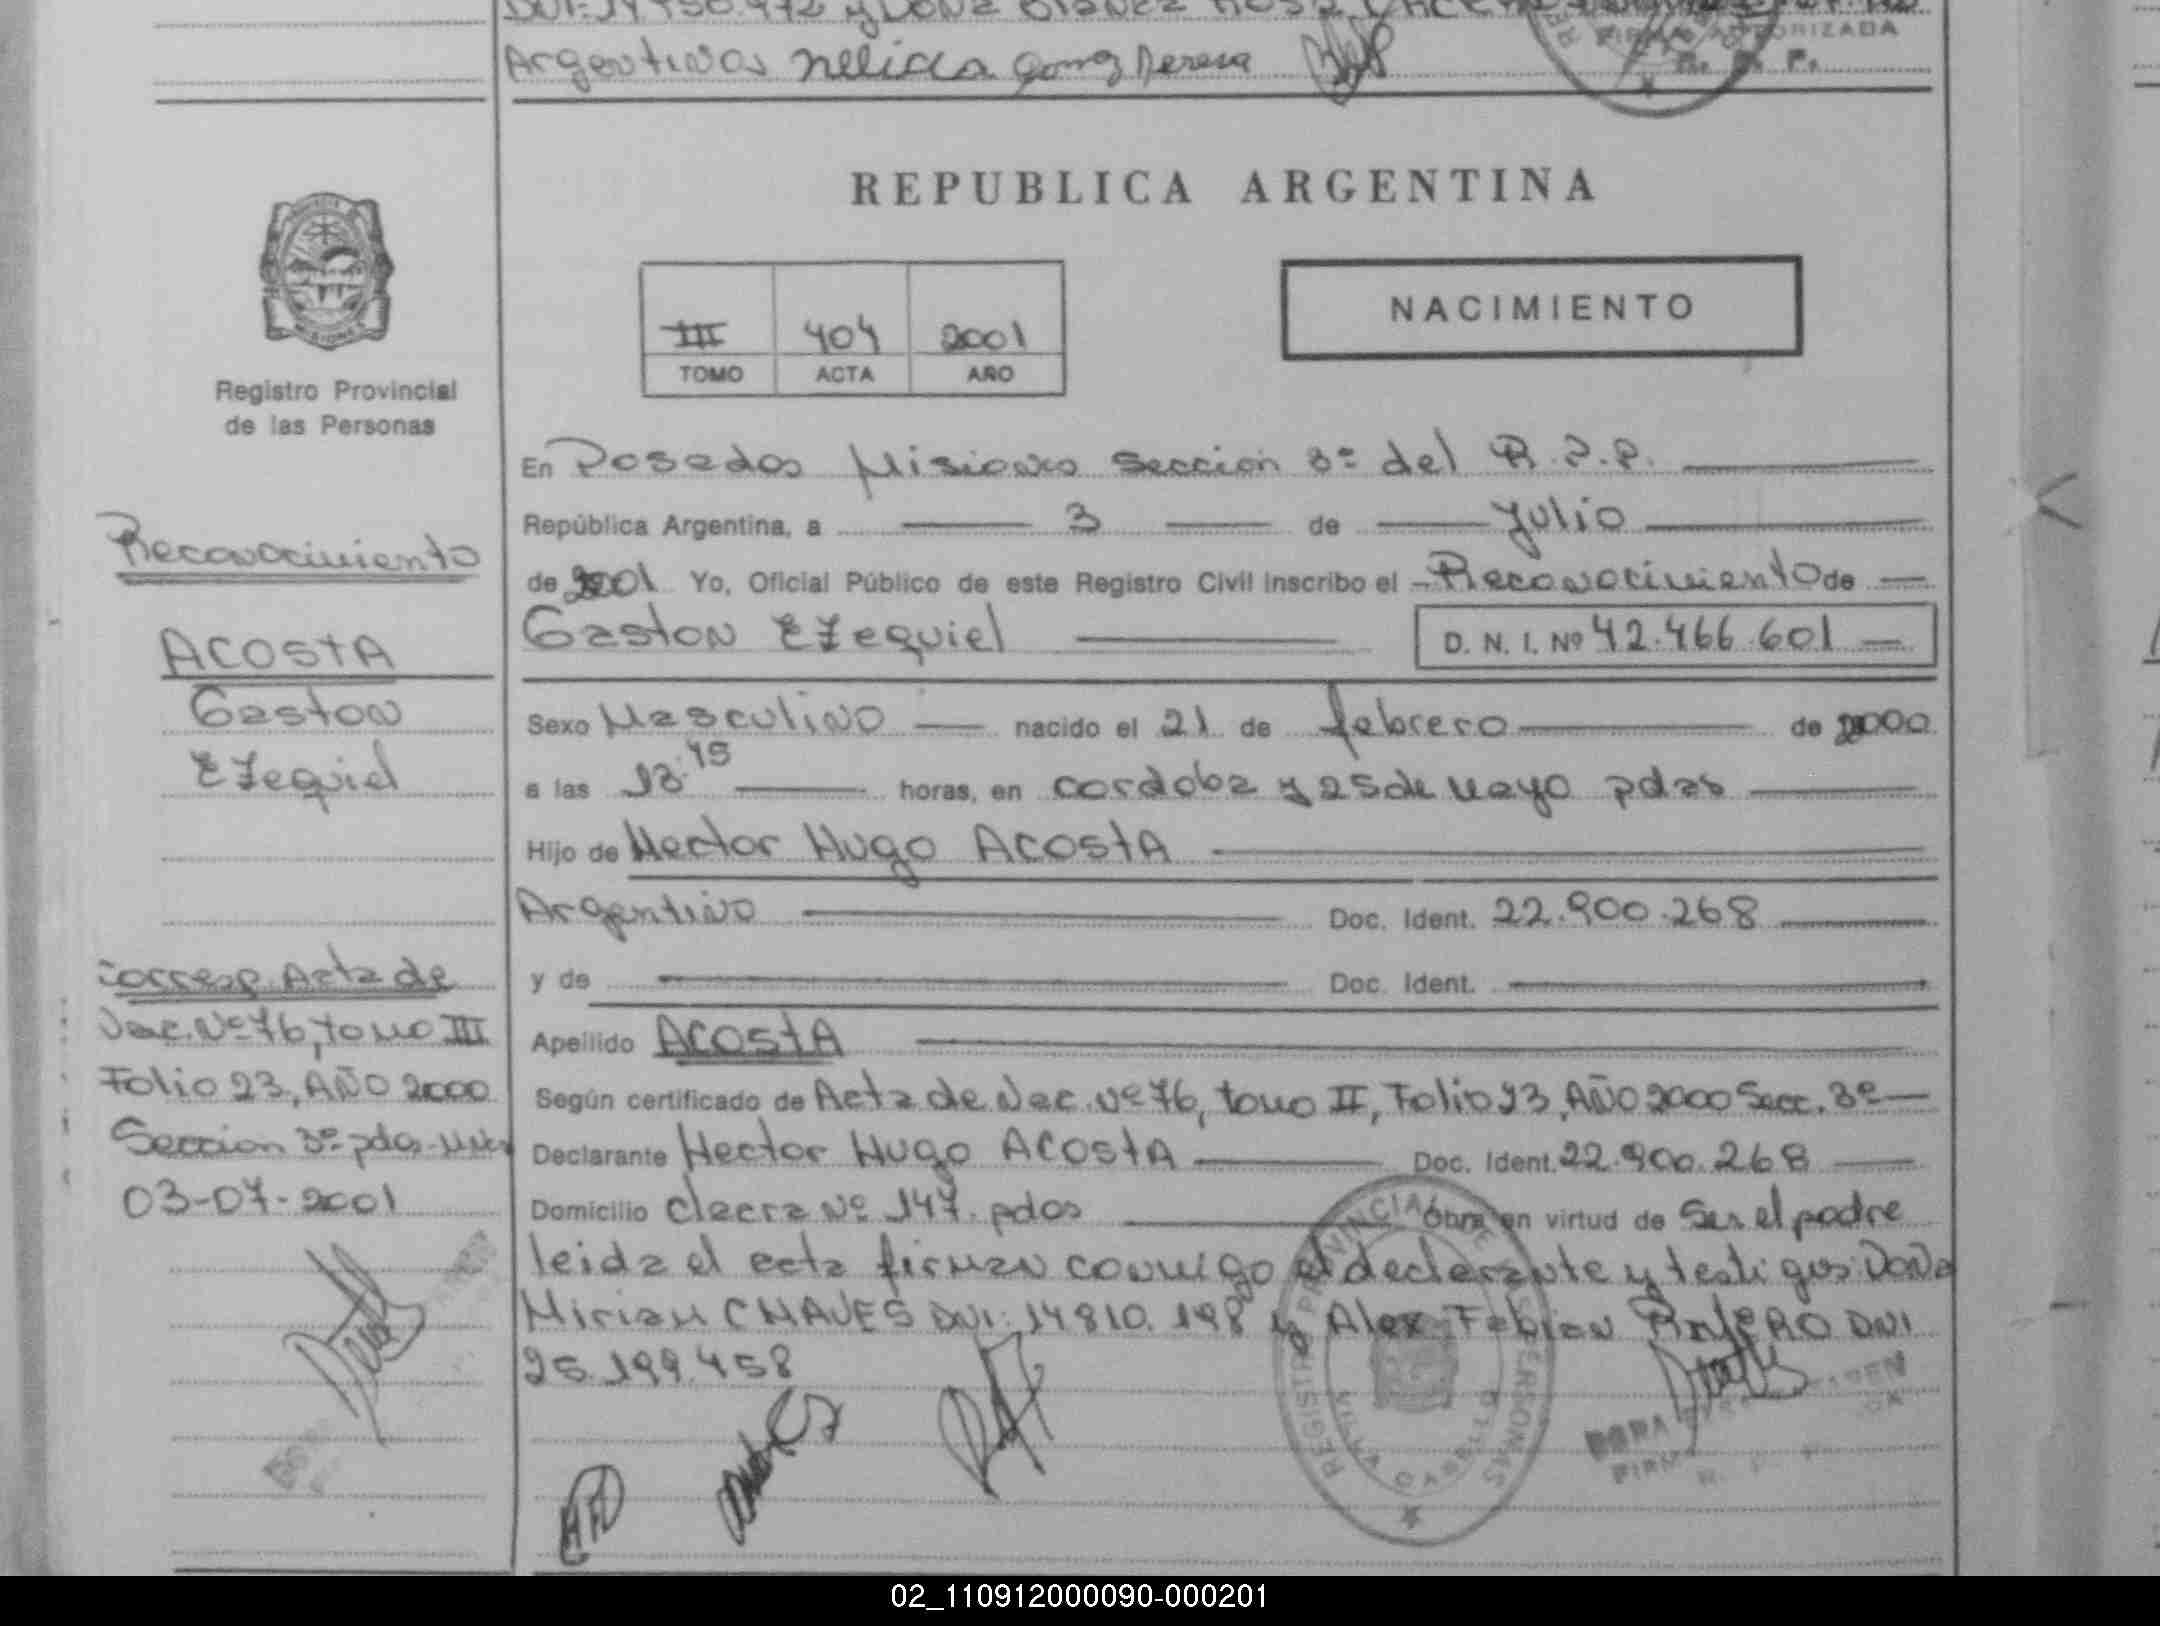 Argentinos Nelida Gomez Pereva
FIRMA AUTORIZADA
R. P. P.
REPUBLICA ARGENTINA
NACIMIENTO
III 404 2001
TOMO ACTA AÑO
Registro Provincial
de las Personas
En Posadas Misiones Seccion 3º del R.P.P.
República Argentina, a 3 de Julio
de 2001 Yo, Oficial Público de este Registro Civil inscribo el Reconocimiento de
Gaston EZequiel D. N. I. Nº 42.466.601
Sexo Masculino nacido el 21 de febrero de 2000
a las 13:45 horas, en cordoba y 25 de Mayo pdas
Hijo de Hector Hugo ACOSTA
Argentino Doc. Ident. 22.900.268
y de Doc. Ident.
Apellido ACOSTA
Según certificado de Acta de Nac. Nº 76, tomo II, Folio 23, AÑO 2000 Secc. 3º
Declarante Hector Hugo ACOSTA Doc. Ident. 22.900.268
Domicilio chacra Nº 147. pdas Obra en virtud de Ser el padre
leida el acta firman conmigo el declarante y testigos: DOÑA
Mirian CHAVES DNI: 14810.198 y Alex Fabian PIÑERO DNI
25.199.458
Reconocimiento
ACOSTA
Gaston
EZequiel
Corresp. Acta de
Nac. Nº 76, tomo III
Folio 23, AÑO 2000
Seccion 3º pdas-Mnes
03-07-2001
REGISTRO PROVINCIAL DE LAS PERSONAS
VILLA CABELLO
DORA
FIRMA
02_110912000090-000201